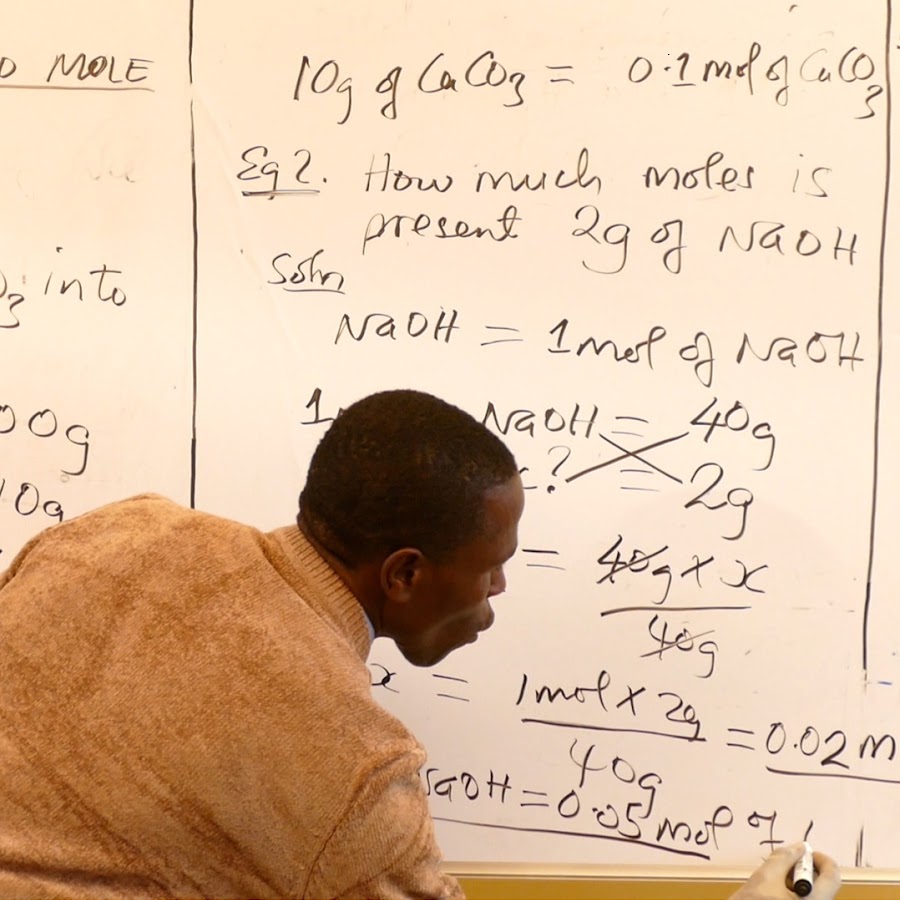 MOLE
into
00g
10g
10g of CaCO3 = 0.1 mol of CaCO3
Eg 2. How much moles is
present 2g of NaOH
Soln
NaOH = 1 mol of NaOH
1 NaOH = 40g
? = 2g
= 40g x x
40g
x = 1 mol x 2g = 0.02 m
40g
NaOH = 0.05 mol of